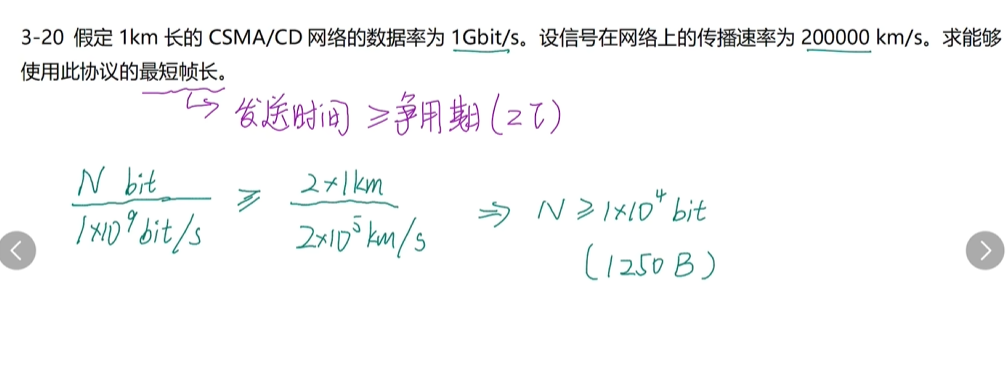 3-20 假定 1km 长的 CSMA/CD 网络的数据率为 1Gbit/s。设信号在网络上的传播速率为 200000 km/s。求能够
使用此协议的最短帧长。
↳ 发送时间 ≥ 争用期(2τ)
N bit / 1×10⁹bit/s ≥ 2×1km / 2×10⁵km/s ⇒ N ≥ 1×10⁴ bit
(1250 B)